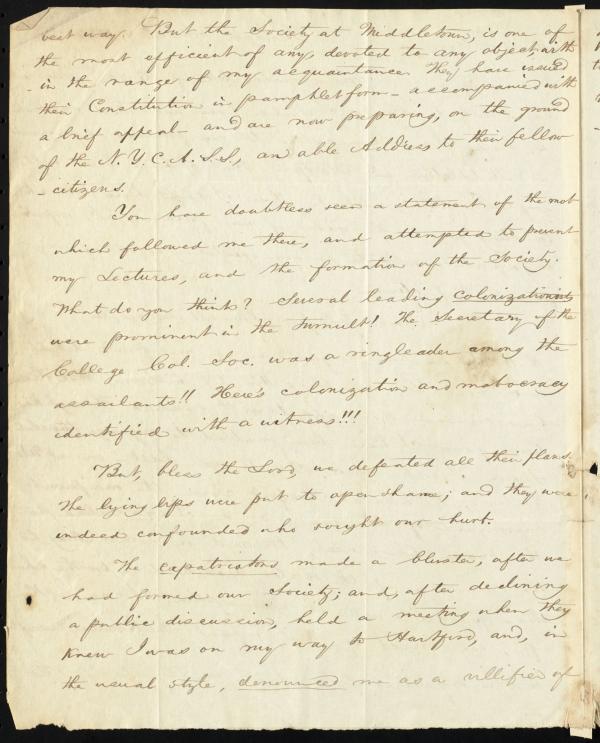 best way. But the Society at Middletown, is one of
the most efficient of any, devoted to any object, with
-in the range of my acquaintance. They have issued
their Constitution in pamphlet form - accompanied with
a brief appeal - and are now preparing, on the ground
of the N. Y. C. A. S. S., an able Address to their fellow
-citizens.
You have doubtless seen a statement of the mob
which followed me there, and attempted to prevent
my Lectures, and the formation of the Society.
What do you think? Several leading colonizationists
were prominent in the tumult! The Secretary of the
College Col. Soc. was a ringleader among the
assailants!! Here's colonization and mobocracy
identified with a witness!!!
But, bless the Lord, we defeated all their plans.
The lying lips were put to open shame; and they were
indeed confounded who sought our hurt.
The expatriators made a bluster, after we
had formed our Society; and, after declining
a public discussion, held a meeting when they
knew I was on my way to Hartford, and, in
the usual style, denounced me as a villifier of